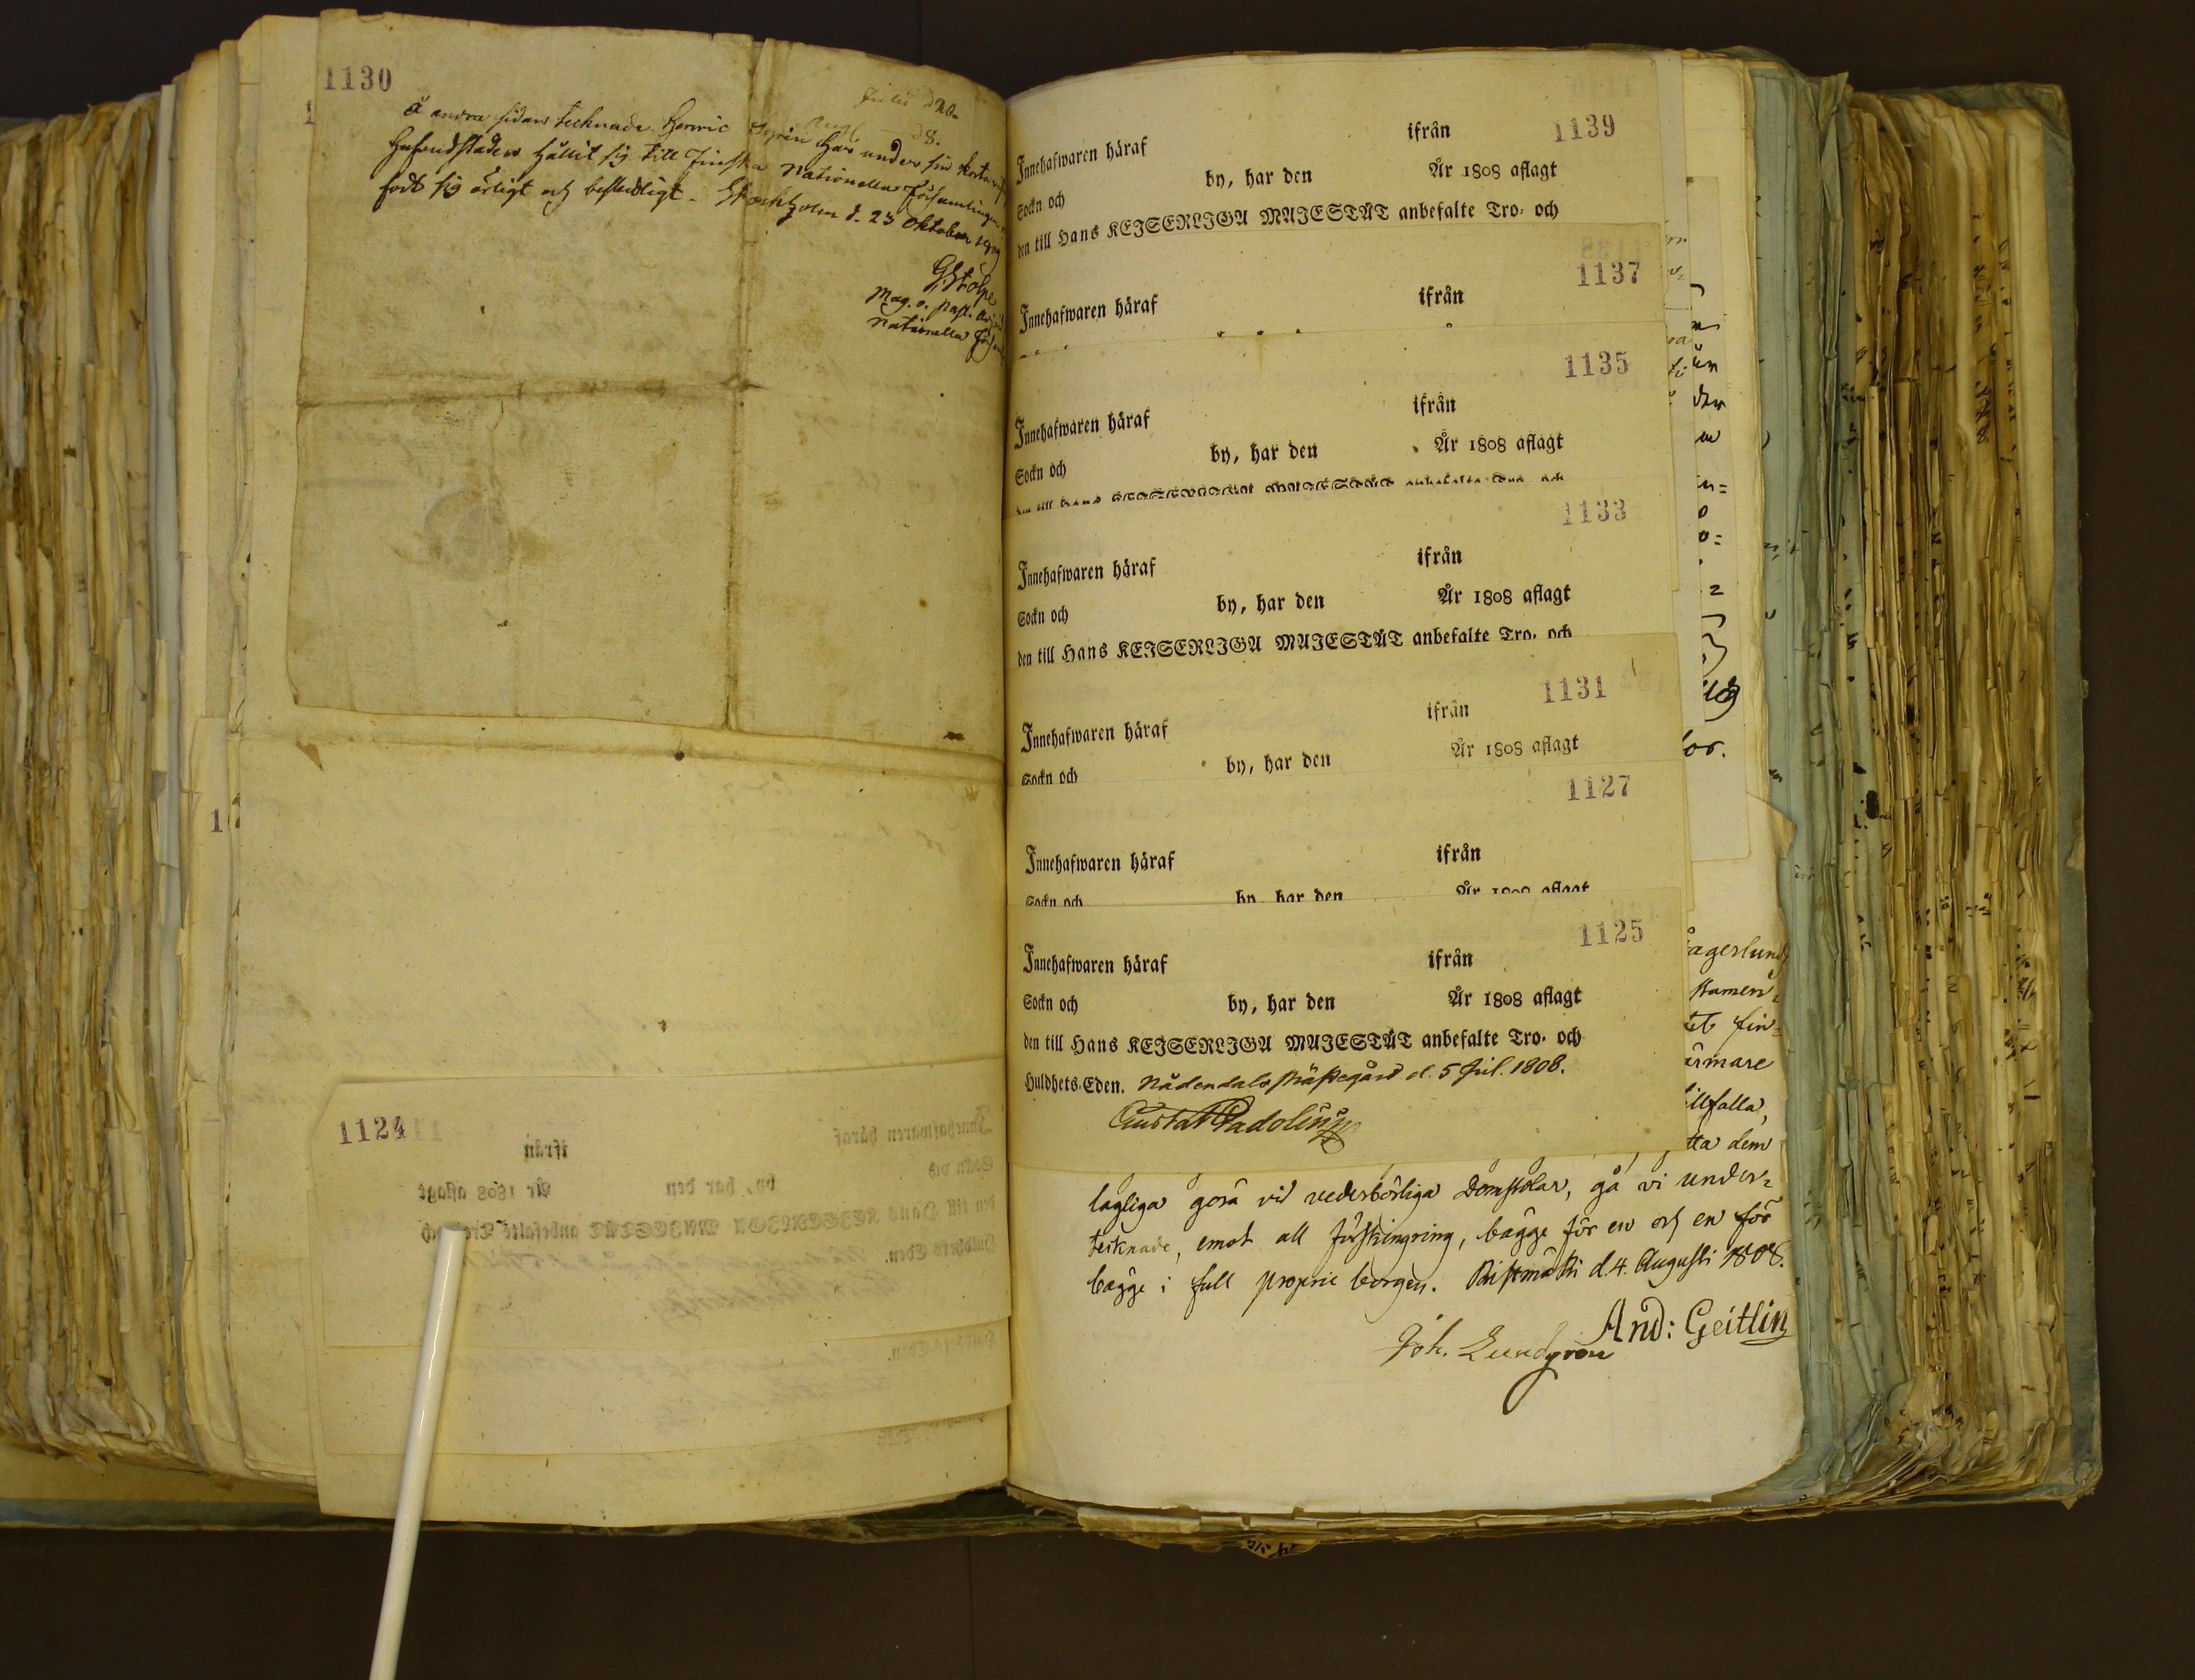 1130
Julii d 20.
Aug. d 8.
å andra sidan tecknade Henric har under sin korta
hufvudstaden hållit sig till Finska Nationella Församlingen
fört sig ärligt och beskedligt. Stockholm d. 23 Oktober
GStolpe
Mag. o. past. Adj.
Nationella
1124
1139
Innehafwaren häraf ifrån
Sockn och by, har den År 1808 aflagt
den till Hans KEJSERLIGA MAJESTÄT anbefalte Tro- och
1137
Innehafwaren häraf ifrån
1135
Innehafwaren häraf ifrån
Sockn och by, har den År 1808 aflagt
den till Hans KEJSERLIGA MAJESTÄT anbefalte Tro- och
1133
Innehafwaren häraf ifrån
Sockn och by, har den År 1808 aflagt
den till Hans KEJSERLIGA MAJESTÄT anbefalte Tro- och
1131
Innehafwaren häraf ifrån
Sockn och by, har den År 1808 aflagt
1127
Innehafwaren häraf ifrån
Sockn och by, har den År 1808 aflagt
1125
Innehafwaren häraf ifrån
Sockn och by, har den År 1808 aflagt
den till Hans KEJSERLIGA MAJESTÄT anbefalte Tro- och
Huldhets-Eden. Nådendals Prästegård d. 5 Jul. 1808.
Gustaf Padolin
agerlund
stamen
tet fin=
ärmare
illfalla,
tta dem
lagliga göra vid vederbörliga Domstolar, gå vi under=
tecknade, emot all förskingring, bägge för en och en för
bägge i full proprie borgen. Ristmäki d. 4. Augusti 1808.
And: Geitlin
Joh. Lundgren